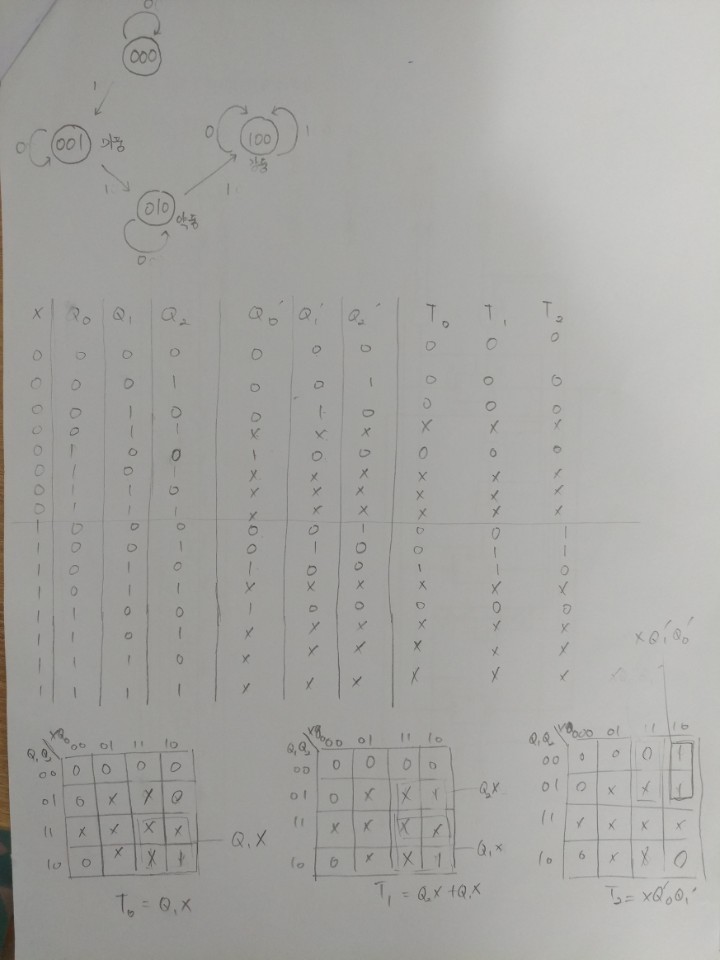 0
000
1
0 001 미동
0 100 1
강동
1 1
010 약동
0
X Q₀ Q₁ Q₂ Q₀' Q₁' Q₂' T₀ T₁ T₂
0 0 0 0 0 0 0 0 0 0
0 0 0 1 0 0 1 0 0 0
0 0 1 0 0 1 0 0 0 0
0 0 1 1 X X X X X X
0 1 0 0 1 0 0 0 0 0
0 1 0 1 X X X X X X
0 1 1 0 X X X X X X
0 1 1 1 X X X X X X
1 0 0 0 0 0 1 0 0 1
1 0 0 1 0 1 0 0 1 1
1 0 1 0 1 0 0 1 1 0
1 0 1 1 X X X X X X
1 1 0 0 1 0 0 0 0 0
1 1 0 1 X X X X X X
1 1 1 0 X X X X X X
1 1 1 1 X X X X X X
XQ₁'Q₀'
Q₁Q₂ XQ₀ 00 01 11 10
00 0 0 0 0
01 0 X X 0
11 X X X X
10 0 X X 1
Q₁X
T₀ = Q₁X
Q₁Q₂ XQ₀ 00 01 11 10
00 0 0 0 0
01 0 X X 1
11 X X X X
10 0 X X 1
Q₂X
Q₁X
T₁ = Q₂X + Q₁X
Q₁Q₂ XQ₀ 00 01 11 10
00 0 0 0 1
01 0 X X 1
11 X X X X
10 0 X X 0
T₂ = XQ₀'Q₁'